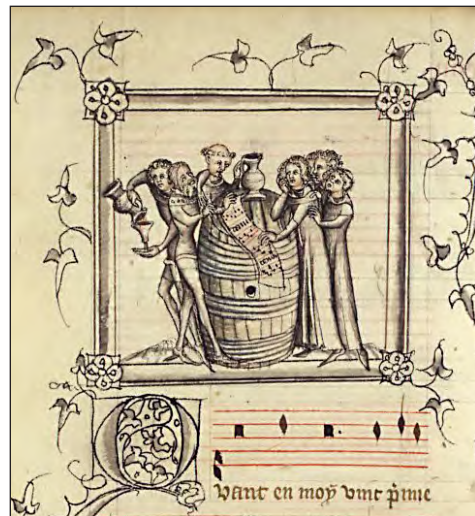 Quant en moẏ vint p̄mie